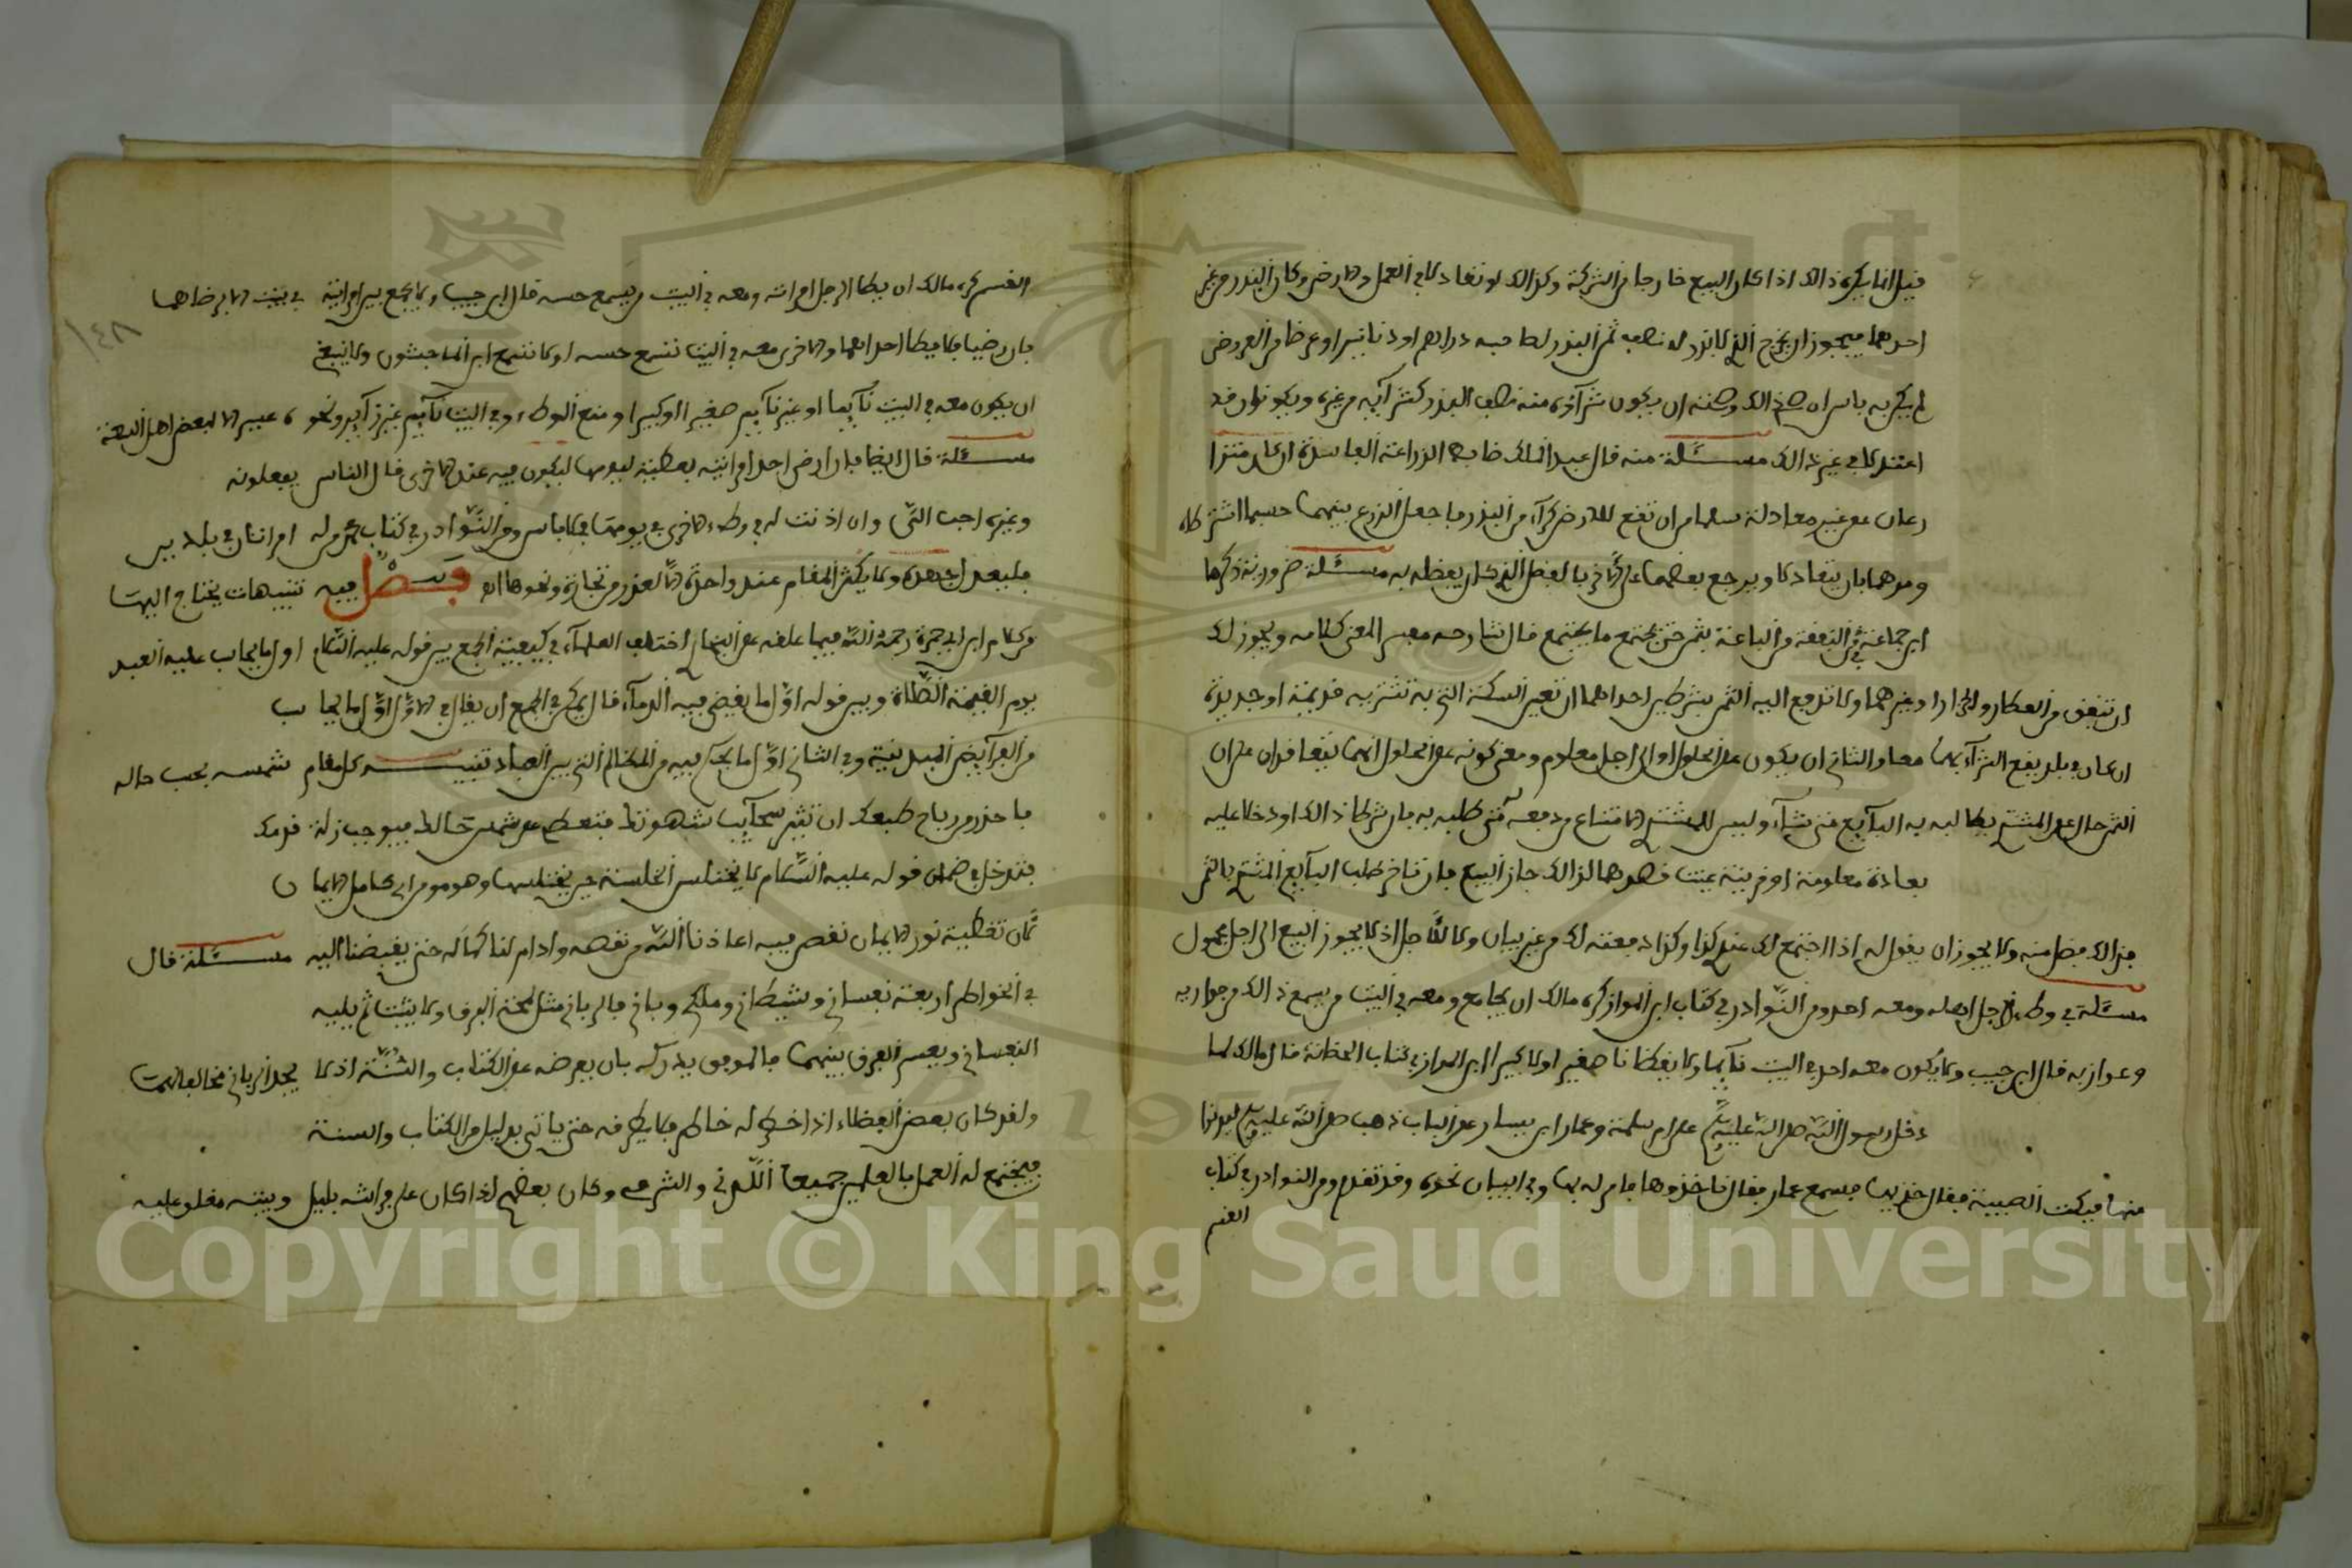 قيل انما يكره ذالك اذا كان البيع خارجا من الشركة وكذالك لو تعادلا في العمل والارض وكان البذر من غير
احدهما فيجوز ان يخرج الذي لا بزر له نصف ثمن البذر لصاحبه دراهم او دنانير او عرضا من العروض
لم يكن به باس ان صح ذالك وصفته ان يكون شراؤه منه نصف البذر كشرائه من غيره ويكونوان قد
اعتدلا في غير ذالك مسئلة منه قال عبد الملك ضابط الزراعة الفاسدة ان كل متزا
رعان عن غير معادلة سلما من ان تقع للارض كراء من البذر فاجعل الزرع بينهما حسبما اشترطاه
ومرهما بان يتعادلا ويرجع بعضهما على الاخر بالفضل الذي كان يفضله به مسئلة ضرورية ذكرها
ابن جماعة في النفقة من الباعة بثمن حتى يجتمع ما يجتمع قال شارحه معسر المعنى كلامه ويجوز لك
ان تتفق مع العطار والجزار او غيرهما ولا تدفع اليه الثمن بشرطين احداهما ان تعين السكة التي به تشتريه قديمة او جديدة
ان كان في بلد يقع الشراء بهما معا والثاني ان يكون على الحلول او الى اجل معلوم ومعنى كونه على الحلول انهما يتعاقدان على ان
الثمن حال على المشتري يطالبه به البائع متى شاء وليس للمشتري الامتناع من دفعه متى طلبه به فان شرطا ذالك او دخلا عليه
بعادة معلومة او قرينة عينت قصدهما لذالك جاز البيع فان تاخر طلب البائع المشتري بالثمن
فذالك فضل منه ولا يجوز ان يقول له اذا اجتمع لك عندي كذا وكذا دفعته لك من غير بيان ولا للاجل اذ لا يجوز البيع الى اجل مجهول
مسئلة في وطء الرجل اهله ومعه احد ومن النوادر في كتاب ابن المواز كره مالك ان يجامع ومعه في البيت من يسمع ذالك من جواريه
وغوازيه قال ابن حبيب ولا يكون معه احد في البيت نائما ولا يقظانا صغيرا ولا كبيرا ابن المواز في كتاب الحضانة قال مالك لما
دخل رسول الله صلى الله عليه وسلم على ام سلمة وعمار ابن ياسر على الباب ذهب صلى الله عليه وسلم ليدنوا
منها فبكت الصبية فقال خذيها فسمع عمار فقال فاخذوها فامر له بها وفي البيان نحوه وقد تقدم ومن النوادر في كتاب
القسم
القسم كره مالك ان يطا الرجل امراته ومعه في البيت من يسمع حسه قال ابن حبيب ولا يجمع بين امراتيه في بيت الا برضاهما
فان رضيا فلا يطا احداهما والاخرى معه في البيت تسمع حسه او لا تسمع ابن الماجشون ولا ينبغي
ان يكون معه في البيت نائما او غير نائم صغيرا او كبيرا ومنع الوطء وفي البيت نائم غير زائر ونحوه عبير الا لبعض اهل البعثة
مسئلة قال ايضا فان ارضى احد امراتيه بعطية ليومها ليكون فيه عند الاخرى قال الناس يفعلونه
وغيره احب الي وان اذنت له في وطء الاخرى في يومها فلا باس ومن النوادر في كتاب محمد من له امراتان في بلدين
فليعدل بينهما ولا يكثر المقام عند واحدة الا لعذر من تجارة ونحوها اه فصل فيه تنبيهات يحتاج اليها
من كلام ابن ابي جمرة رحمه الله فيما علقه على البخاري اختلف العلماء في كيفية الجمع بين قوله عليه السلام اول ما يحاسب عليه العبد
يوم القيمة الصلاة وبين قوله اول ما يقضى فيه الدماء قال يمكن في الجمع ان يقال في الاول اول ما يحاسب
من الفرائض البدنية وفي الثاني اول ما يحكم فيه من المظالم التي بين العباد تنبيه كل مقام شمسه بحسب حاله
فاحذر من رياح طبعك ان تثير سحائب شهوتك فتعطي على شمس حالك فيوجب زلة قدمك
فتدخل في ضمان قوله عليه السلام لا يختلس الخلسة حين يختلسها وهو مومن اي كامل الايمان
لان تغطية نور الايمان نقص فيه اعاذنا الله من نقصه وادام لنا كماله حتى يقبضنا اليه مسئلة قال
في الخواطر اربعة نفساني وشيطاني وملكي ورباني فالرباني مثل لمحة البرق ولا يثبت ثم يليه
النفساني ويعسر الفرق بينهما فالموفق يدركه بان يعرضه على الكتاب والسنة اذ لا يجد الرباني مخالفا لهما
ولقد كان بعض الفضلاء اذا خطر له خاطر فلا يصرفه حتى ياتي بدليل من الكتاب والسنة
فيجتمع له العمل بالعلمين جميعا اللدني والشرعي وكان بعضهم اذا كان على فراشه بليل وبيته مغلوعليه
١٤٨
Copyright © King Saud University
1957